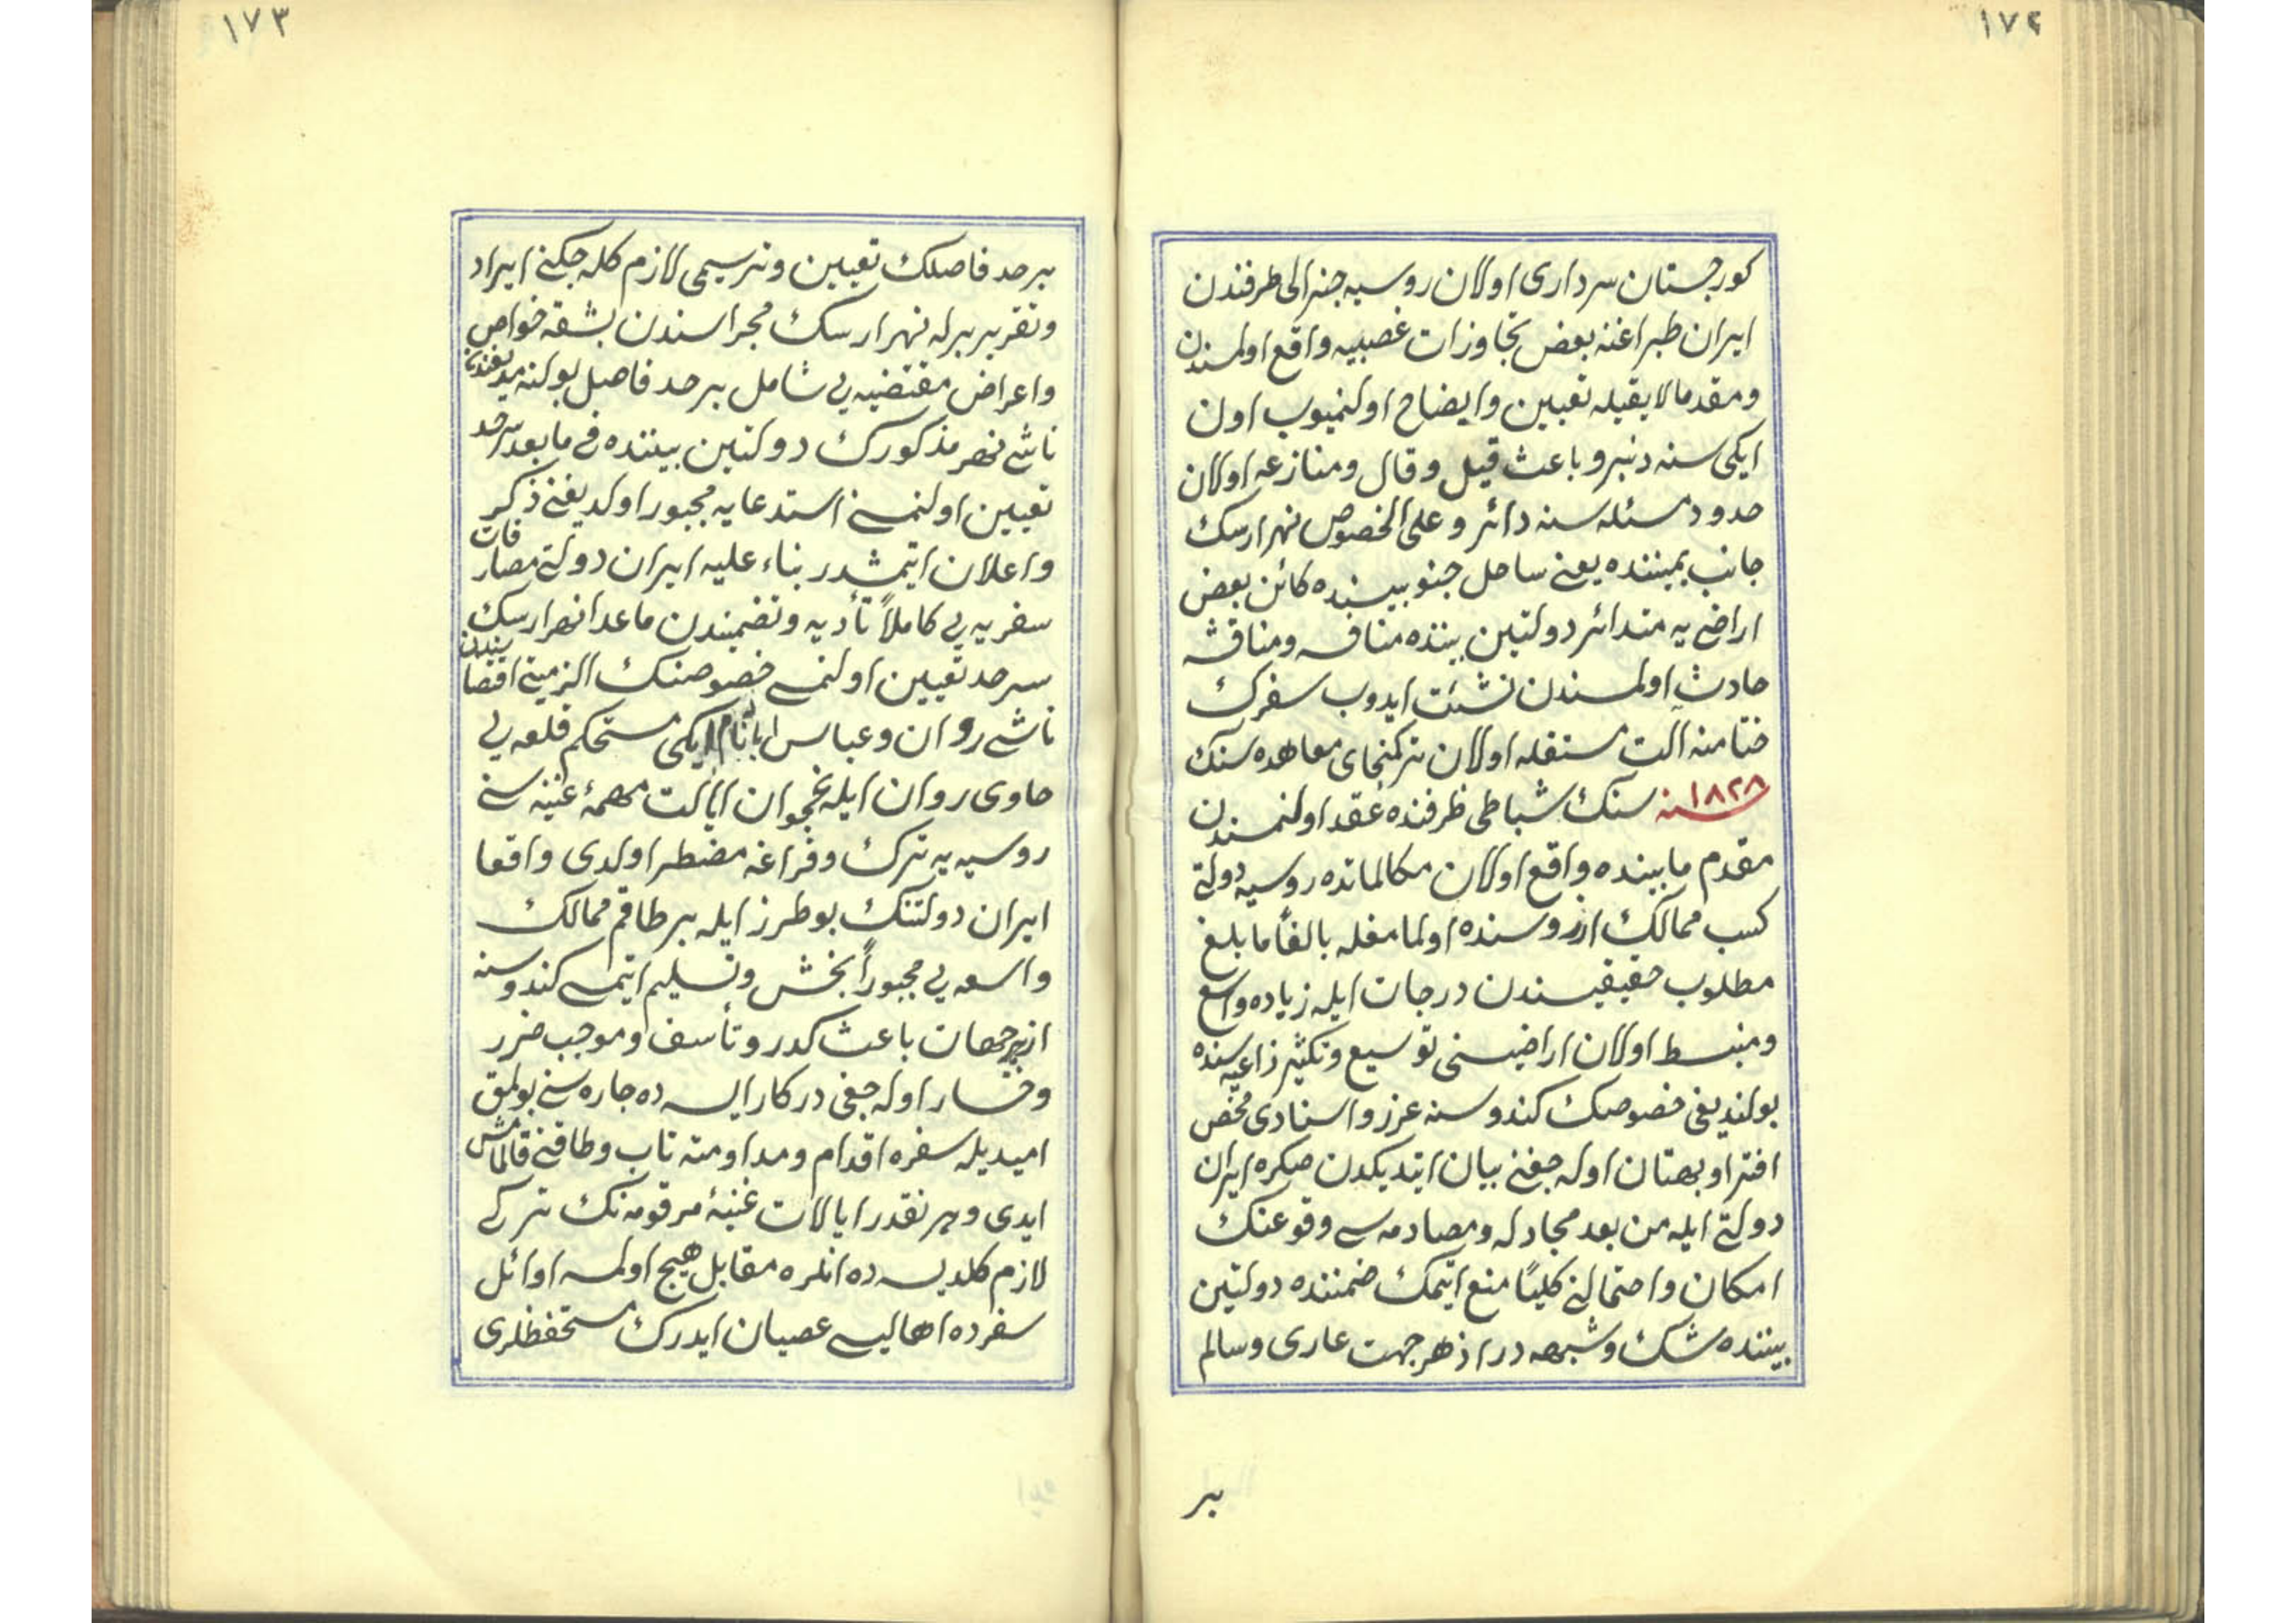 ١٧٢
كورجستان سرداری اولان روسیه جنرالی طرفندن
ایران طپراغنه بعض تجاوزات غصبیه واقع اولمسندن
ومقدما لایقیله تعیین وایضاح اولنمیوب اون
ایكی سنه دنبرو باعث قیل وقال ومنازعه اولان
حدود مسئله سنه دائر وعلی الخصوص نهر ارسك
جانب یمیننده یعنی ساحل جنوبیسنده كائن بعض
اراضی یه متدائر دولتین بیننده منافسه ومناقشه
حادث اولمسندن نشئت ایدوب سفرك
ختامنه آلت مستقله اولان تركمنچای معاهده سنك
سنه ١٨٢٨ سنك شباطی ظرفنده عقد اولنمسندن
مقدم مابینده واقع اولان مكالماتده روسیه دولتی
كسب ممالك ارزوسنده اولمامغله بالغاً مابلغ
مطلوب حقیقیسندن درجات ایله زیاده واسع
ومنبسط اولان اراضیسنی توسیع وتكثیر زاعیه سنده
بولندیغی خصوصك كندوسنه عزو واسنادی محض
افترا وبهتان اوله جغنی بیان ایتدیكدن صكره ایران
دولتی ایله من بعد مجادله ومصادمه سی وقوعنك
امكان واحتمالنی كلیًا منع ایتمك ضمننده دولتین
بیننده شك وشبهه در از هر جهت عاری وسالم
بر
١٧٣
بر حد فاصلك تعیین وترسیمی لازم كله جكنی ایراد
وتقریر برله نهر ارسك مجراسندن بشقه خواص
واعراض مقتضیه یی شامل بر حد فاصل بولنه مدیغندن
ناشی نهر مذكورك دولتین بیننده فی مابعد سرحد
تعیین اولنمسنی استدعایه مجبور اولدیغنی ذكر
واعلان ایتمشدر بناء علیه ایران دولتی مصارفات
سفریه یی كاملاً تأدیه وتضمیندن ماعدا نهر ارسك
سرحد تعیین اولنمسی خصوصنك الزمیتی اقتضاسندن
ناشی روان وعباس اباد نام ایكی مستحكم قلعه یی
حاوی روان ایله نخجوان ایالت مهمۀ غنیه سنی
روسیه یه ترك وفراغه مضطر اولدی واقعا
ایران دولتنك بو طرز ایله بر طاقم ممالك
واسعه یی مجبوراً بخش وتسلیم ایتمسی كندوسنه
از هر جهات باعث كدر وتأسف وموجب ضرر
وخسار اوله جغی دركار ایسه ده چاره سنی بولمق
امیدیله سفره اقدام ومداومته تاب وطاقتی قالمامش
ایدی وهر نقدر ایالات غنیۀ مرقومه نك تركی
لازم كلدیسه ده انلره مقابل هیچ اولمسه اوائل
سفرده اهالیسی عصیان ایدرك مستحفظلری